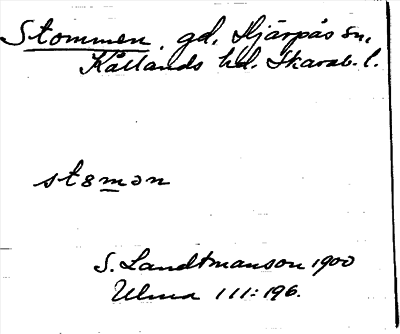 Stommen, gd, Hjärpås sn,
Kållands hd. Skarab. l.
st8mən
S. Landtmanson 1900
Ulma 111:196.